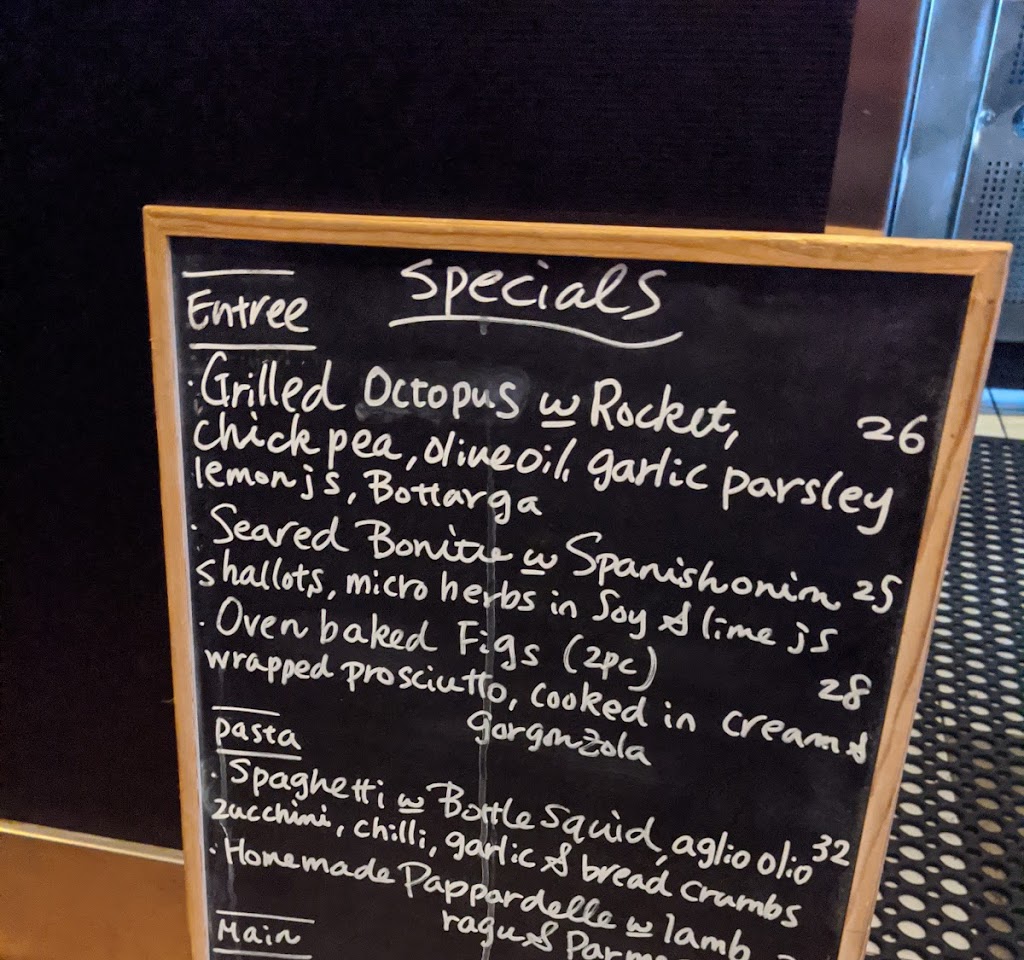 Specials
Entree
· Grilled Octopus w Rocket, 26
chick pea, olive oil, garlic parsley
lemon js, Bottarga
· Seared Bonito w Spanish onion 25
shallots, micro herbs in Soy & lime js
· Oven baked Figs (2pc) 28
wrapped prosciutto, cooked in cream &
gorgonzola
pasta
· Spaghetti w Bottle Squid, aglio olio 32
zucchini, chilli, garlic & bread crumbs
· Homemade Pappardelle w lamb
ragu &
Main